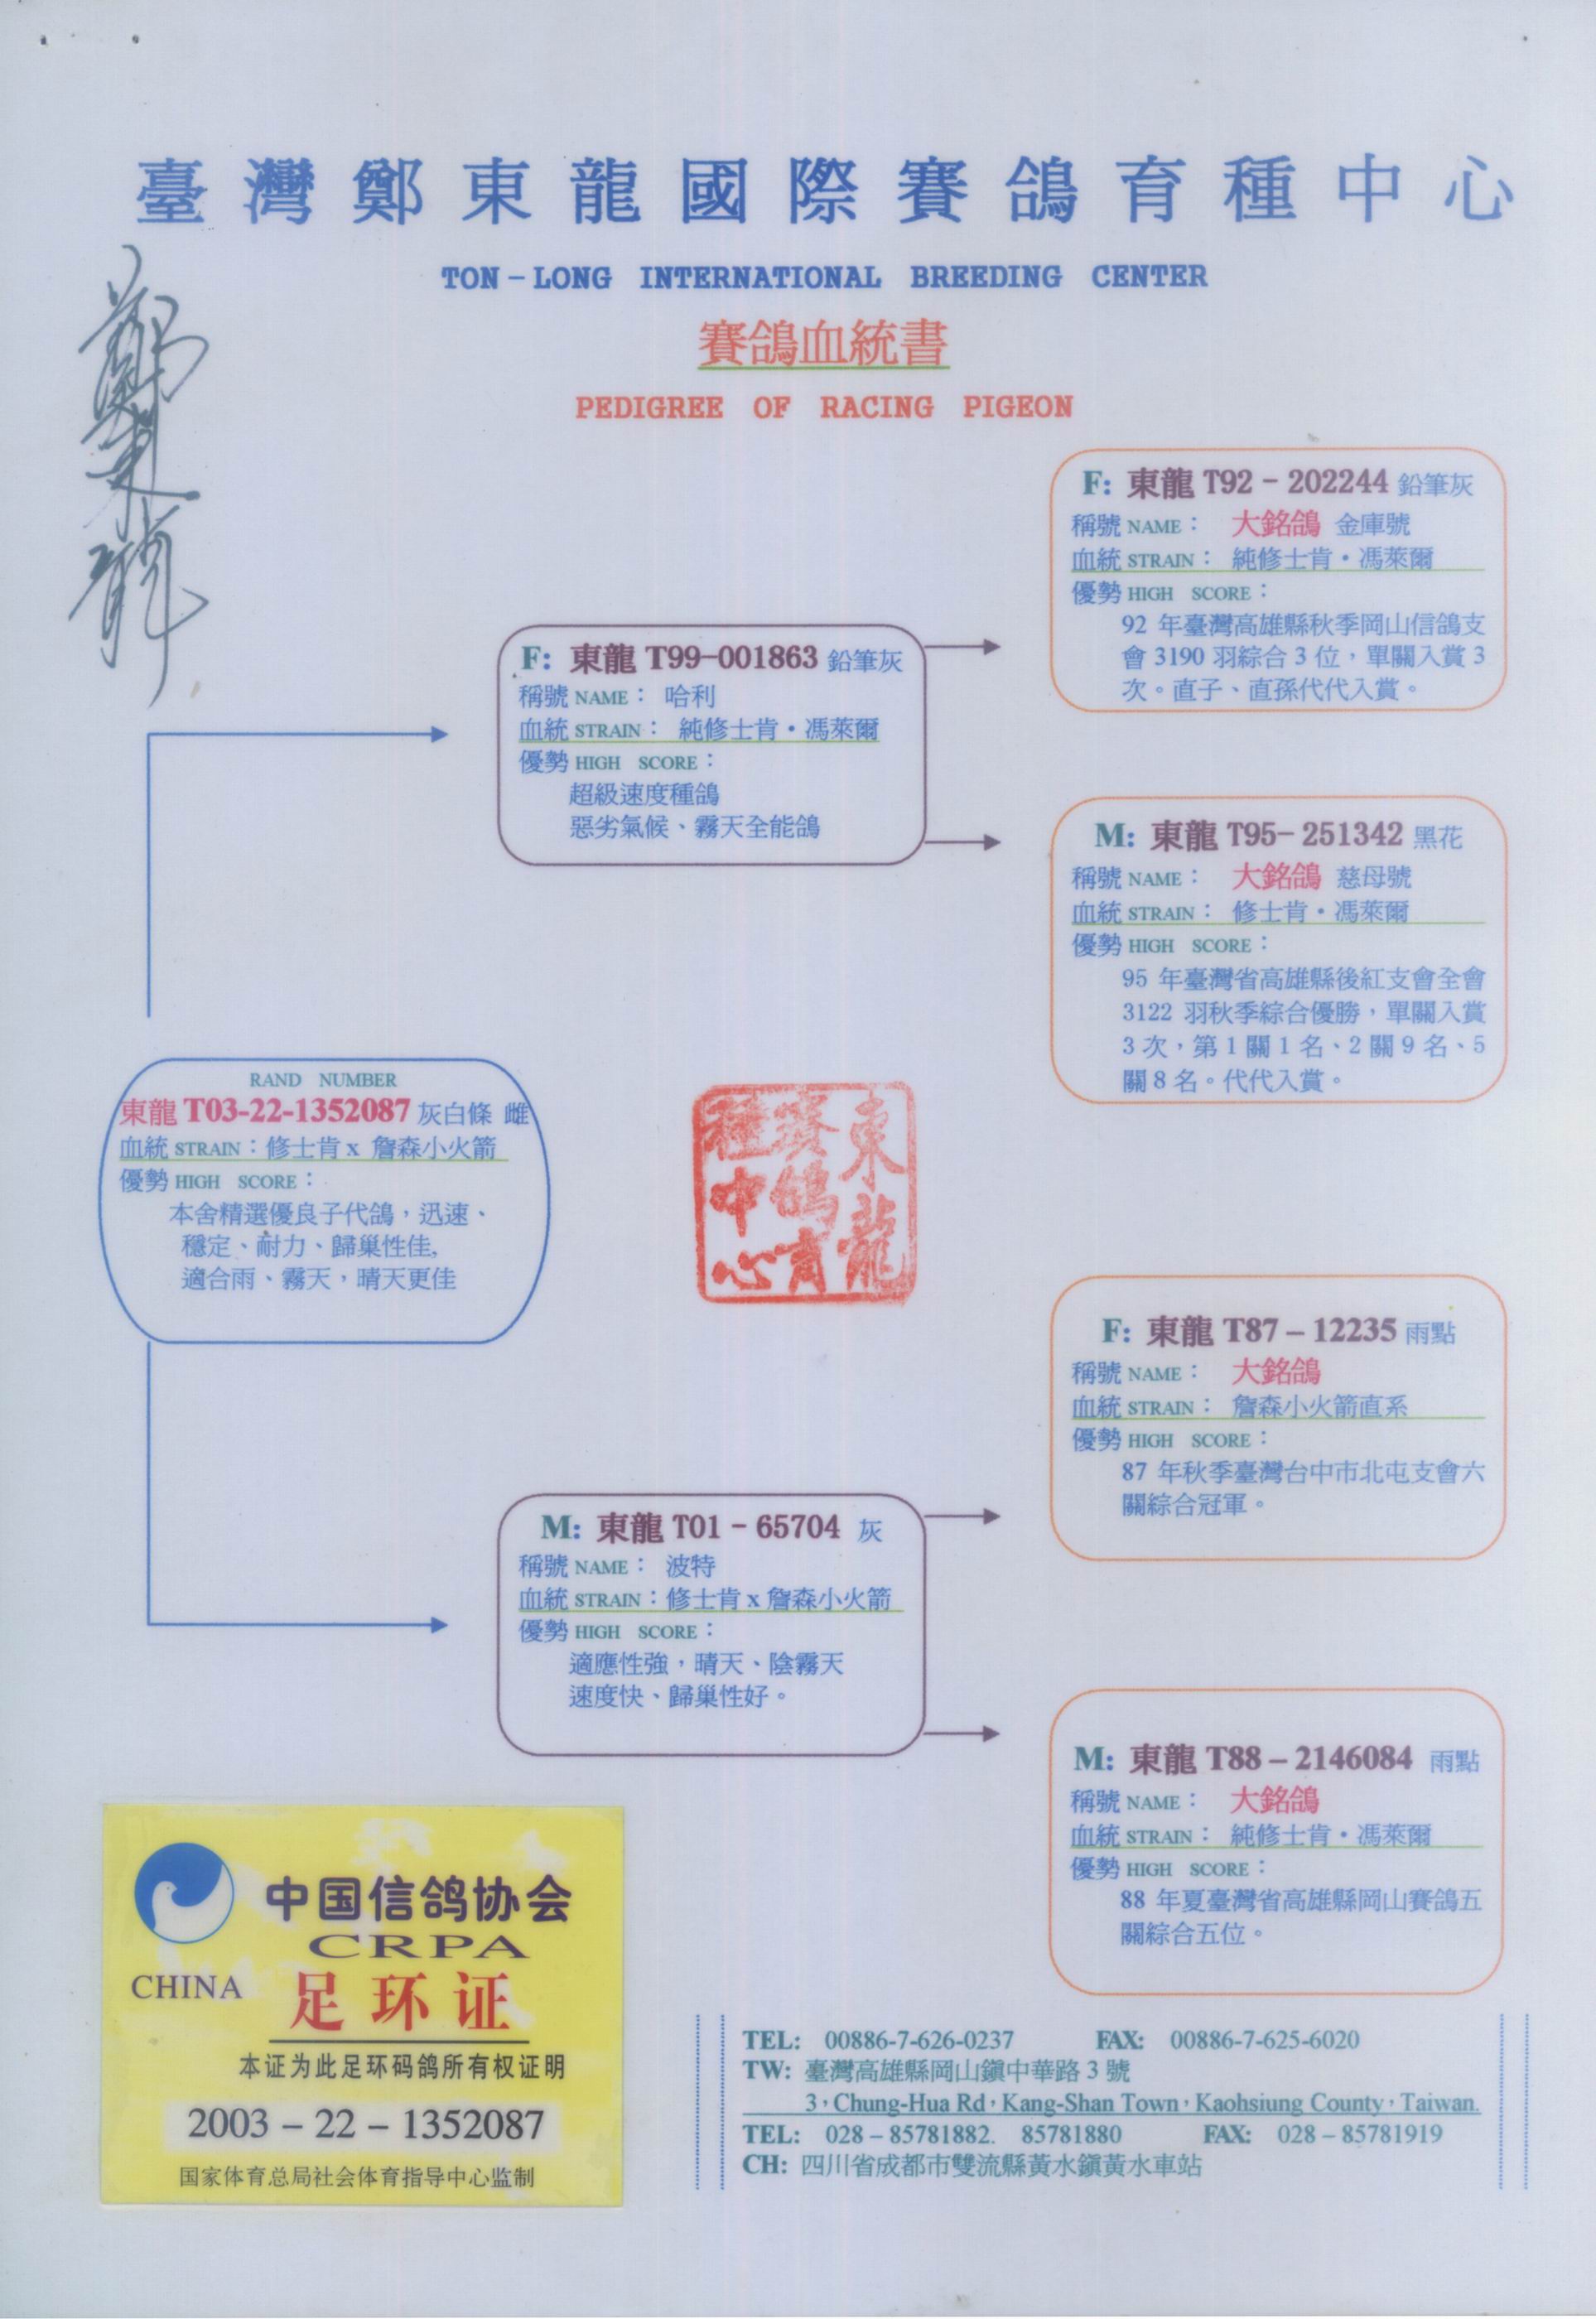 臺灣鄭東龍國際賽鴿育種中心
TON-LONG INTERNATIONAL BREEDING CENTER
賽鴿血統書
PEDIGREE OF RACING PIGEON
鄭東龍
F: 東龍 T92-202244 鉛筆灰
稱號 NAME： 大銘鴿 金庫號
血統 STRAIN： 純修士肯・馮萊爾
優勢 HIGH SCORE：
92 年臺灣高雄縣秋季岡山信鴿支
會 3190 羽綜合 3 位，單關入賞 3
次。直子、直孫代代入賞。
F: 東龍 T99-001863 鉛筆灰
稱號 NAME： 哈利
血統 STRAIN： 純修士肯・馮萊爾
優勢 HIGH SCORE：
超級速度種鴿
惡劣氣候、霧天全能鴿
M: 東龍 T95-251342 黑花
稱號 NAME： 大銘鴿 慈母號
血統 STRAIN： 修士肯・馮萊爾
優勢 HIGH SCORE：
95 年臺灣省高雄縣後紅支會全會
3122 羽秋季綜合優勝，單關入賞
3 次，第 1 關 1 名、2 關 9 名、5
關 8 名。代代入賞。
RAND NUMBER
東龍 T03-22-1352087 灰白條 雌
血統 STRAIN：修士肯 x 詹森小火箭
優勢 HIGH SCORE：
本舍精選優良子代鴿，迅速、
穩定、耐力、歸巢性佳,
適合雨、霧天，晴天更佳
東龍
賽鴿育
種中心
F: 東龍 T87-12235 雨點
稱號 NAME： 大銘鴿
血統 STRAIN： 詹森小火箭直系
優勢 HIGH SCORE：
87 年秋季臺灣台中市北屯支會六
關綜合冠軍。
M: 東龍 T01-65704 灰
稱號 NAME： 波特
血統 STRAIN：修士肯 x 詹森小火箭
優勢 HIGH SCORE：
適應性強，晴天、陰霧天
速度快、歸巢性好。
M: 東龍 T88-2146084 雨點
稱號 NAME： 大銘鴿
血統 STRAIN： 純修士肯・馮萊爾
優勢 HIGH SCORE：
88 年夏臺灣省高雄縣岡山賽鴿五
關綜合五位。
中国信鸽协会
CRPA
CHINA
足环证
本证为此足环码鸽所有权证明
2003-22-1352087
国家体育总局社会体育指导中心监制
TEL: 00886-7-626-0237 FAX: 00886-7-625-6020
TW: 臺灣高雄縣岡山鎮中華路 3 號
3，Chung-Hua Rd，Kang-Shan Town，Kaohsiung County，Taiwan.
TEL: 028-85781882. 85781880 FAX: 028-85781919
CH: 四川省成都市雙流縣黃水鎮黃水車站